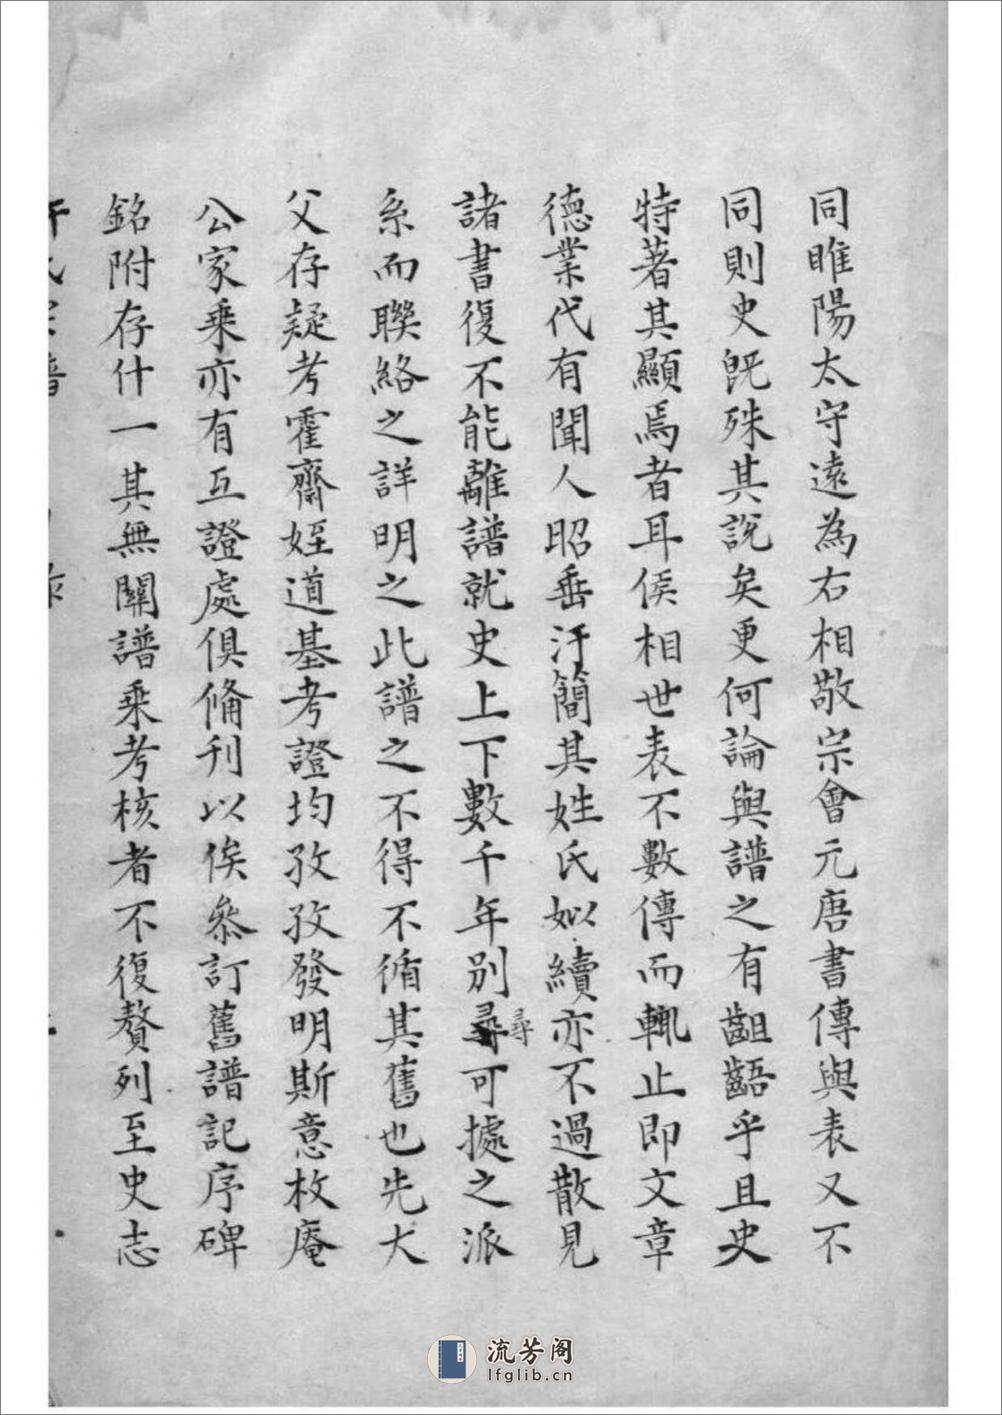 同睢陽太守遠為右相敬宗會元唐書傳與表又不
同則史旣殊其說矣更何論與譜之有齟齬乎且史
特著其顯焉者耳侯相世表不數傳而輒止即文章
德業代有聞人昭垂汗簡其姓氏似續亦不過散見
諸書復不能離譜就史上下數千年別尋可據之派
尋
系而聯絡之詳明之此譜之不得不循其舊也先大
父存疑考霍齋姪道基考證均孜孜發明斯意枚庵
公家乘亦有互證處俱備刊以俟叅訂舊譜記序碑
銘附存什一其無關譜乘考核者不復贅列至史志
許氏宗譜
流芳阁
lfglib.cn